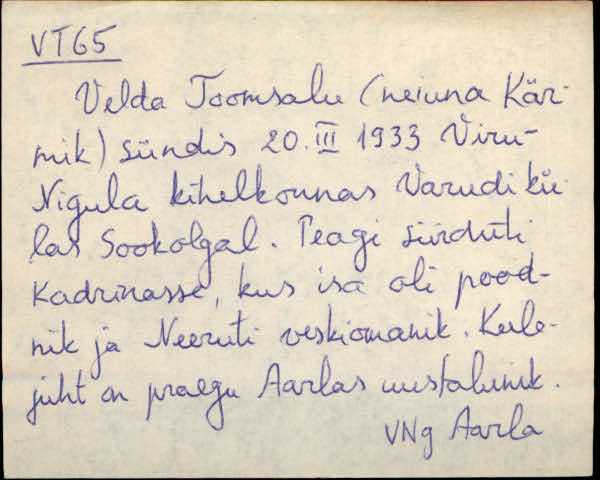 VT65
Velda Toomsalu (neiuna Kär-
mik) sündis 20. III 1933 Viru-
Nigula kihelkonnas Varudi kü
las Sookolgal. Peagi siirduti
Kadrinasse, kus isa oli pood-
nik ja Neeruti veskiomanik. Keele-
juht on praegu Aarlas uustalunik.
VNg Aarla